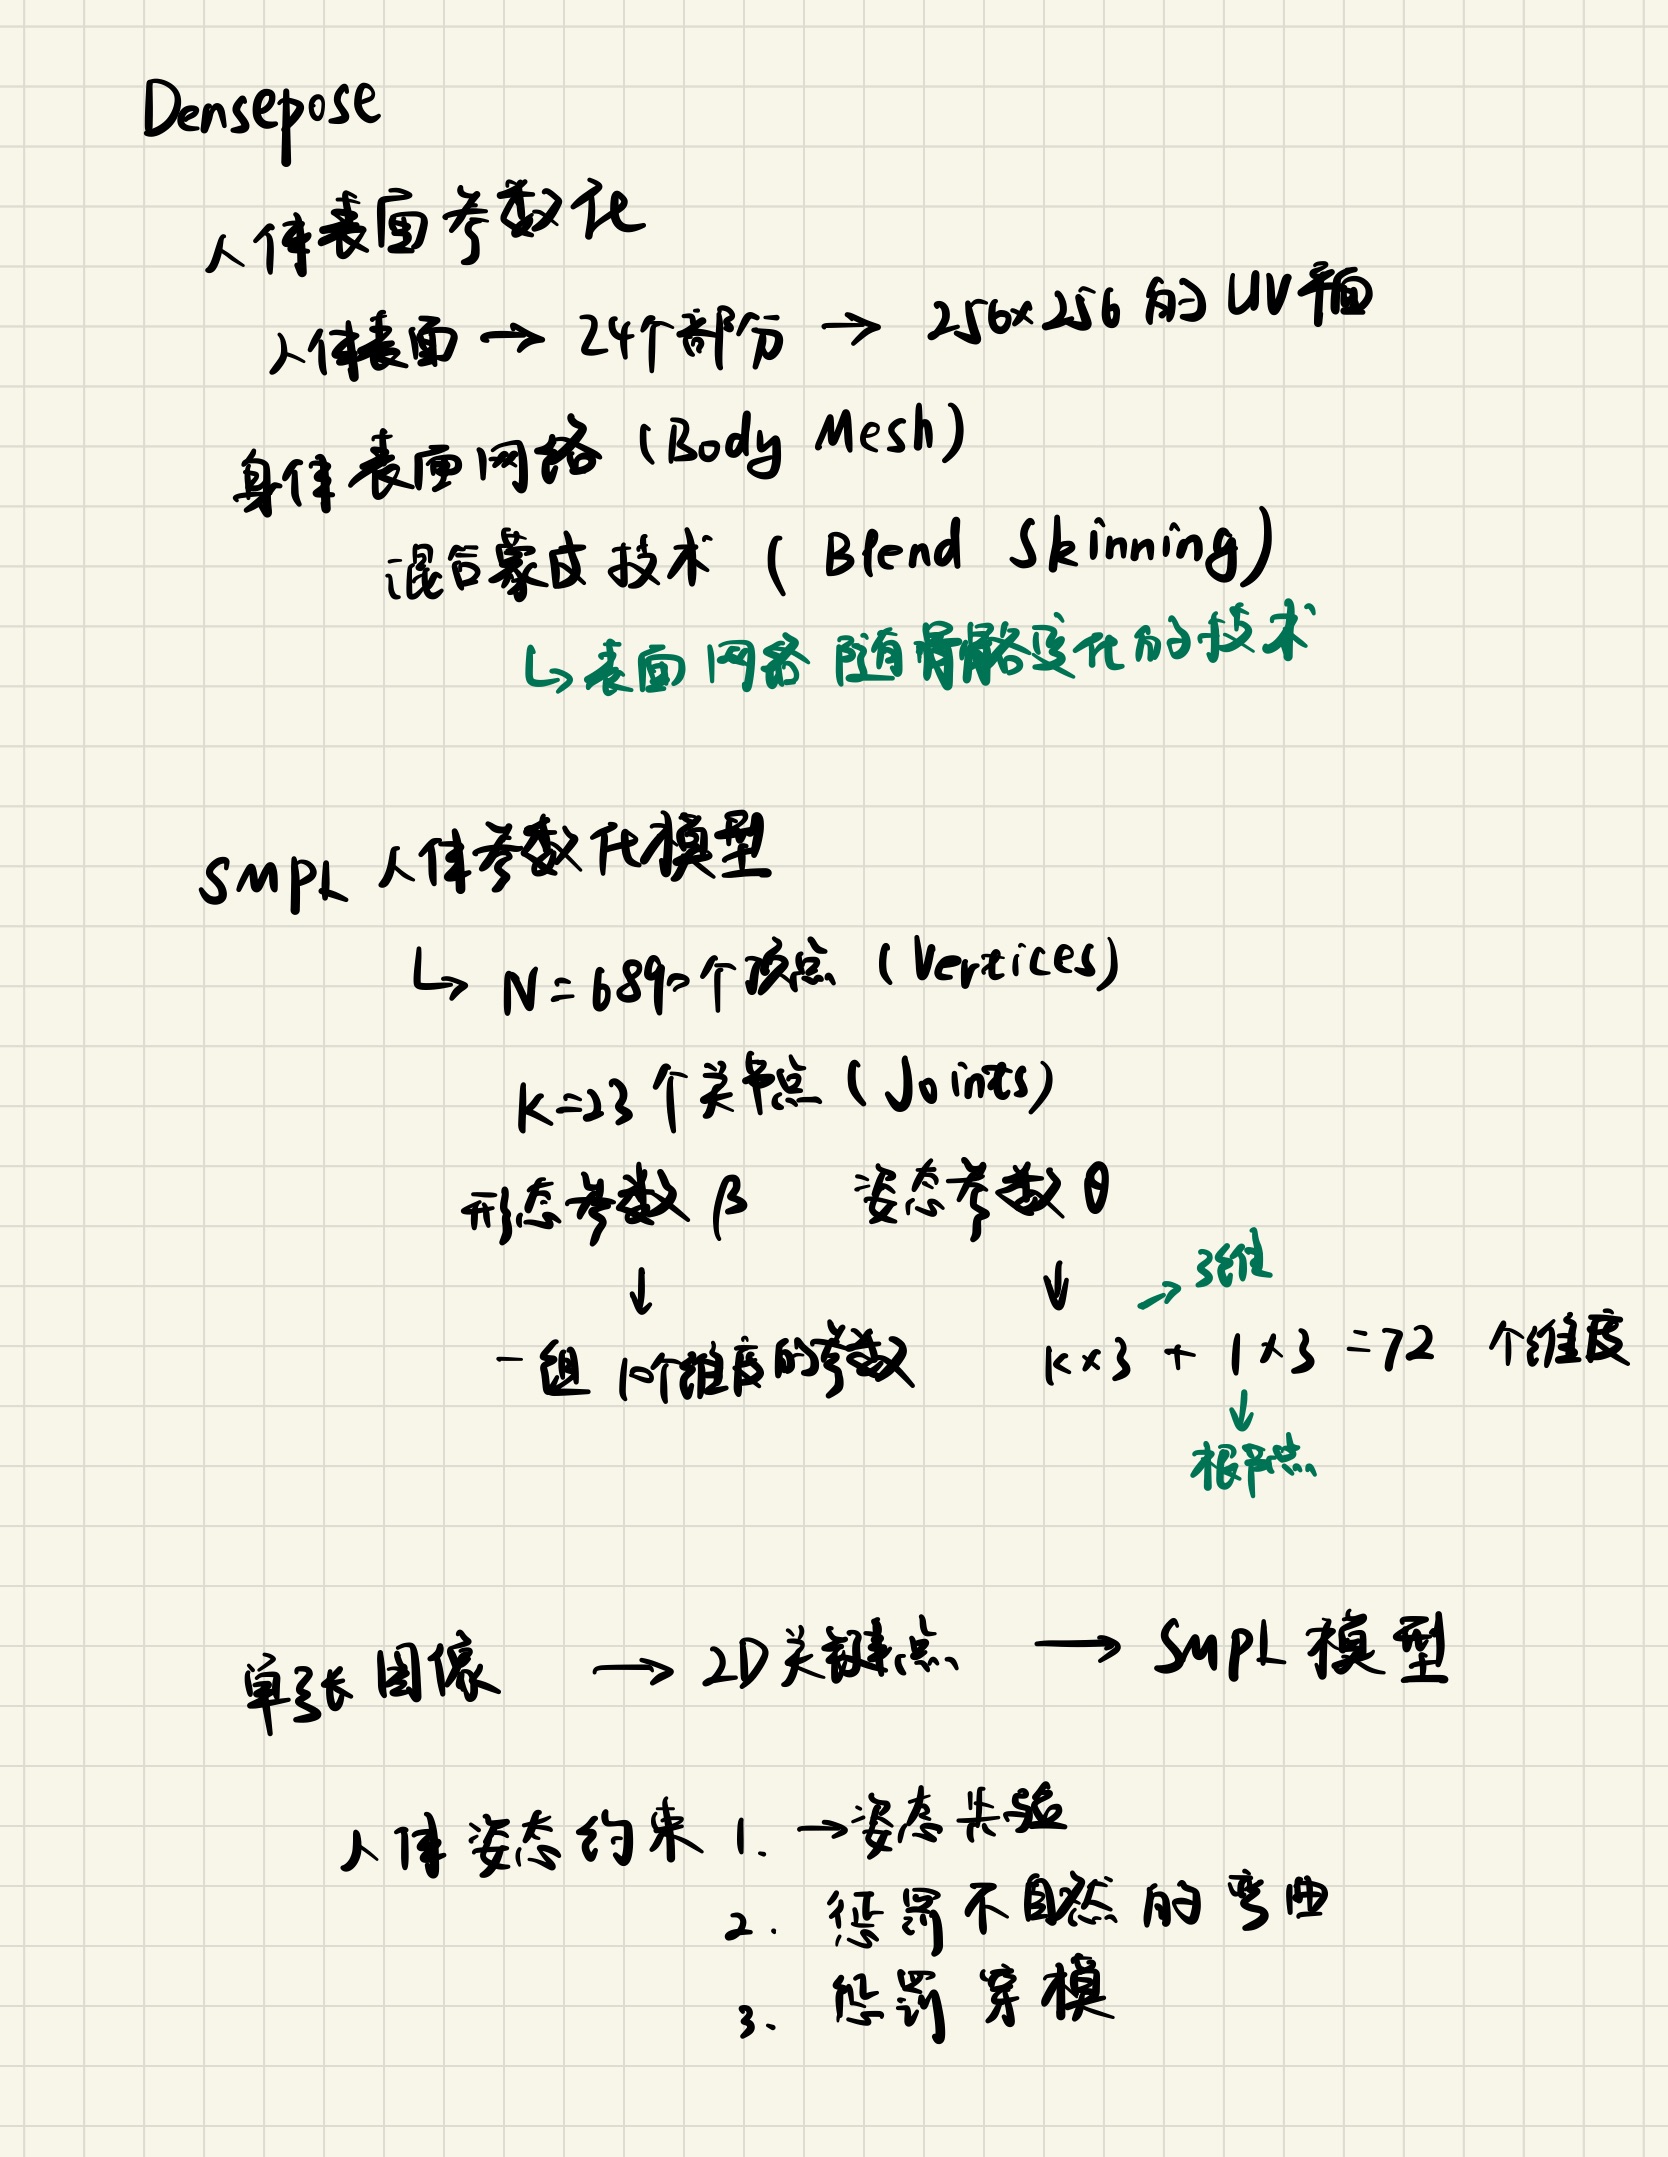 Densepose
人体表面参数化
人体表面 → 24个部分 → 256×256 的 UV平面
身体表面网络 (Body Mesh)
混合蒙皮技术 ( Blend Skinning)
↳ 表面网络 随骨骼变化的技术
SMPL 人体参数化模型
↳ N = 6890个顶点 (Vertices)
K=23个关节点 (Joints)
形态参数 β 姿态参数 θ
↓ ↓ → 3维
一组 10个维度的参数 K×3 + 1×3 =72 个维度
↓
根节点
单张图像 → 2D关键点 → SMPL 模型
人体姿态约束 1. →姿态先验
2. 惩罚不自然的弯曲
3. 惩罚穿模